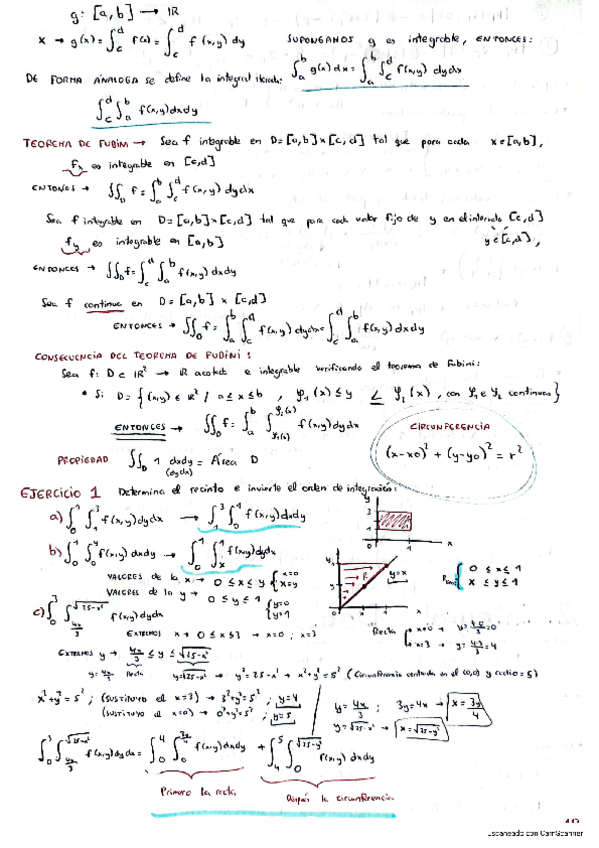 g: [a,b] → IR
x → g(x) = ∫_c^d f(x) = ∫_c^d f(x,y) dy SUPONGAMOS g es integrable, ENTONCES:
∫_a^b g(x) dx = ∫_a^b ∫_c^d f(x,y) dydx
DE FORMA ANALOGA se define la integral iterada:
∫_c^d ∫_a^b f(x,y) dxdy
TEOREMA DE FUBINI → Sea f integrable en D=[a,b]×[c,d] tal que para cada x∈[a,b],
f_x es integrable en [c,d]
ENTONCES → ∬_D f = ∫_a^b ∫_c^d f(x,y) dydx
Sea f integrable en D=[a,b]×[c,d] tal que para cada valor fijo de y en el intervalo [c,d]
f_y es integrable en [a,b] y∈[c,d],
ENTONCES → ∬_D f = ∫_c^d ∫_a^b f(x,y) dxdy
Sea f continua en D=[a,b] × [c,d]
ENTONCES → ∬_D f = ∫_a^b ∫_c^d f(x,y) dydx = ∫_c^d ∫_a^b f(x,y) dxdy
CONSECUENCIA DEL TEOREMA DE FUBINI:
Sea f: D⊂IR² → IR acotada e integrable verificando el teorema de Fubini:
• Si D = {(x,y) ∈ IR² / a ≤ x ≤ b, φ₁(x) ≤ y ≤ φ₂(x), con φ₁ e φ₂ continuas}
ENTONCES → ∬_D f = ∫_a^b ∫_{φ₁(x)}^{φ₂(x)} f(x,y) dydx
CIRCUNFERENCIA
(x-x0)² + (y-y0)² = r²
PROPIEDAD ∬_D 1 dxdy = Área D
(dydx)
EJERCICIO 1 Determina el recinto e invierte el orden de integración:
a) ∫_0^1 ∫_1^3 f(x,y) dydx → ∫_1^3 ∫_0^1 f(x,y) dxdy
y
3
1
0
1
x
b) ∫_0^1 ∫_0^y f(x,y) dxdy → ∫_0^1 ∫_x^1 f(x,y) dydx
y=x
0 ≤ x ≤ 1
x ≤ y ≤ 1
VALORES de la x → 0 ≤ x ≤ y { x=0
x=y
VALORES de la y → 0 ≤ y ≤ 1 { y=0
y=1
c) ∫_0^3 ∫_{4x/3}^{√25-x²} f(x,y) dydx
EXTREMOS x → 0 ≤ x ≤ 3 → x=0; x=3
Recta
x=3 → y=4·3/3=4
EXTREMOS y → 4x/3 ≤ y ≤ √25-x²
y=4x/3 Recta y=√25-x² → y²=25-x² → x²+y²=5² (Circunferencia centrada en el (0,0) y radio=5)
x²+y²=5²; (SUSTITUYO el x=3) → 3²+y²=5²; y=4
(SUSTITUYO el x=0) → 0²+y²=5²; y=5
y=4x/3; 3y=4x → x=3y/4
y=√25-x² → x=√25-y²
∫_0^3 ∫_{4x/3}^{√25-x²} f(x,y) dydx = ∫_0^4 ∫_0^{3y/4} f(x,y) dxdy + ∫_4^5 ∫_0^{√25-y²} f(x,y) dxdy
Primero la recta Después la circunferencia
Escaneado con CamScanner